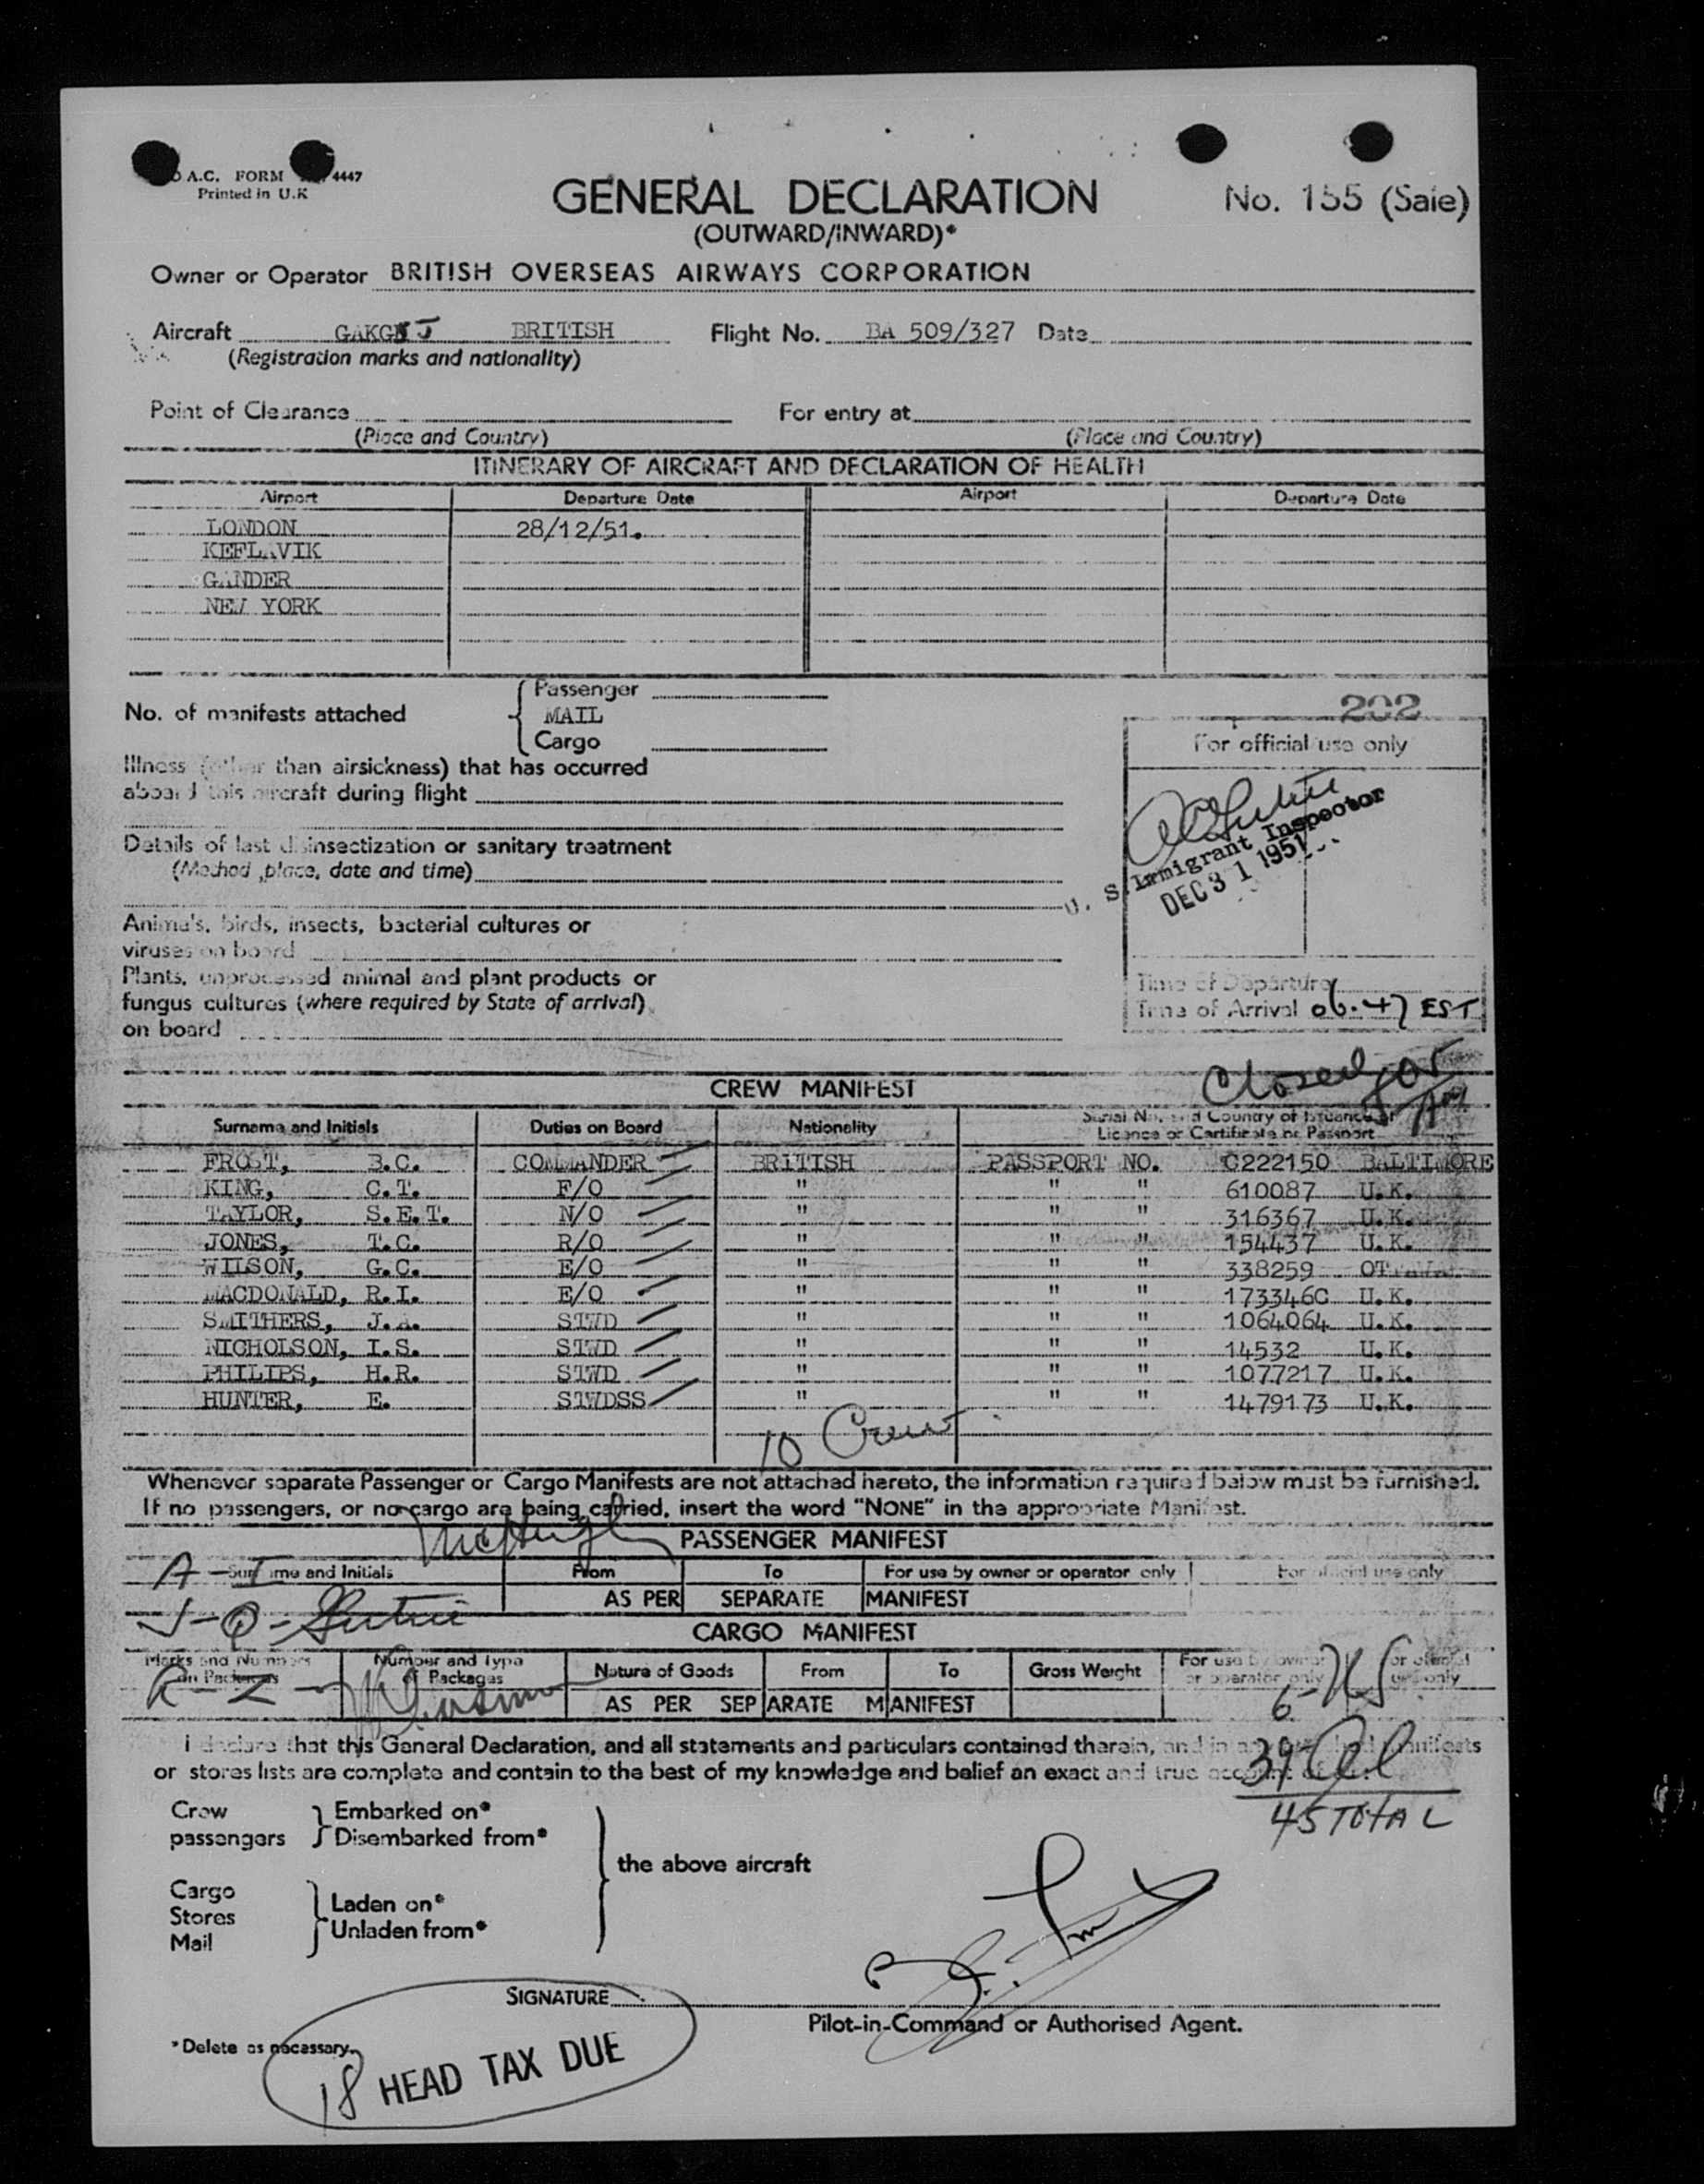 A.C. FORM 4447
Printed in U.K
GENERAL DECLARATION
No. 155 (Sale)
(OUTWARD/INWARD)*
Owner or Operator BRITISH OVERSEAS AIRWAYS CORPORATION
Aircraft GAKG J BRITISH Flight No. BA 509/327 Date
(Registration marks and nationality)
Point of Clearance For entry at
(Place and Country) (Place and Country)
ITINERARY OF AIRCRAFT AND DECLARATION OF HEALTH
Airport Departure Date Airport Departure Date
LONDON 28/12/51.
KEFLAVIK
GANDER
NEW YORK
No. of manifests attached { Passenger
MAIL
Cargo
202
For official use only
Illness (other than airsickness) that has occurred
aboard this aircraft during flight
U. S. Immigrant Inspector
DEC 31 1951
Details of last disinsectization or sanitary treatment
(Method, place, date and time)
Animals, birds, insects, bacterial cultures or
viruses on board
Plants, unprocessed animal and plant products or
fungus cultures (where required by State of arrival)
on board
Time of Departure
Time of Arrival 06.47 EST
Closed 805 AM
CREW MANIFEST
Surname and Initials Duties on Board Nationality Serial No. and Country of Issuance of
Licence or Certificate or Passport
FROST, B.C. COMMANDER BRITISH PASSPORT NO. C222150 BALTIMORE
KING, C.T. F/O " " " 610087 U.K.
TAYLOR, S.E.T. N/O " " " 316367 U.K.
JONES, T.C. R/O " " " 154437 U.K.
WILSON, G.C. E/O " " " 338259 OTTAWA
MACDONALD, R.I. E/O " " " 173346C U.K.
SMITHERS, J.A. STWD " " " 1064064 U.K.
NICHOLSON, I.S. STWD " " " 14532 U.K.
PHILIPS, H.R. STWD " " " 1077217 U.K.
HUNTER, E. STWDSS " " " 1479173 U.K.
10 Crew
Whenever separate Passenger or Cargo Manifests are not attached hereto, the information required below must be furnished.
If no passengers, or no cargo are being carried, insert the word "NONE" in the appropriate Manifest.
PASSENGER MANIFEST
A - I
Surname and Initials From To For use by owner or operator only For official use only
AS PER SEPARATE MANIFEST
J-Q-
CARGO MANIFEST
Marks and Numbers on Packages Number and Type of Packages Nature of Goods From To Gross Weight For use by owner or operator only For official use only
R-Z-
AS PER SEPARATE MANIFEST
6-US
39-Al
45 TOTAL
I declare that this General Declaration, and all statements and particulars contained therein, and in any manifests
or stores lists are complete and contain to the best of my knowledge and belief an exact and true account of
Crew
passengers } Embarked on*
Disembarked from*
the above aircraft
Cargo
Stores
Mail
Laden on*
Unladen from*
SIGNATURE
Pilot-in-Command or Authorised Agent.
*Delete as necessary.
18 HEAD TAX DUE